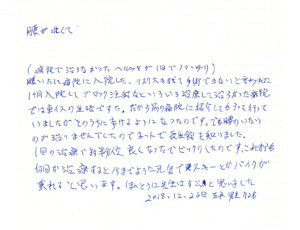 腰が痛くて
(病院で治らなかったヘルニアが1回でバッチリ)
腰いたで病院に入院した。リスク大きすぎて手術できないと言われた
1ヶ月入院して ブロック注射などいろいろ治療して治らなかった病院
では車イスの生活ですた。だから別の病院に紹介してもらって行って
いましたがそのうちに歩けるようになったのです。でも腰のいたい
のが治りませんでしたのでネットで長生館を知りました。
1回の治療で約半分位 良くなったでビックリしたのです。これから
何回か治療すると今までように元気でスキーとかバイクが
乗れると思います。ほんとうに先生はすごいと思いました
2018.12.26日